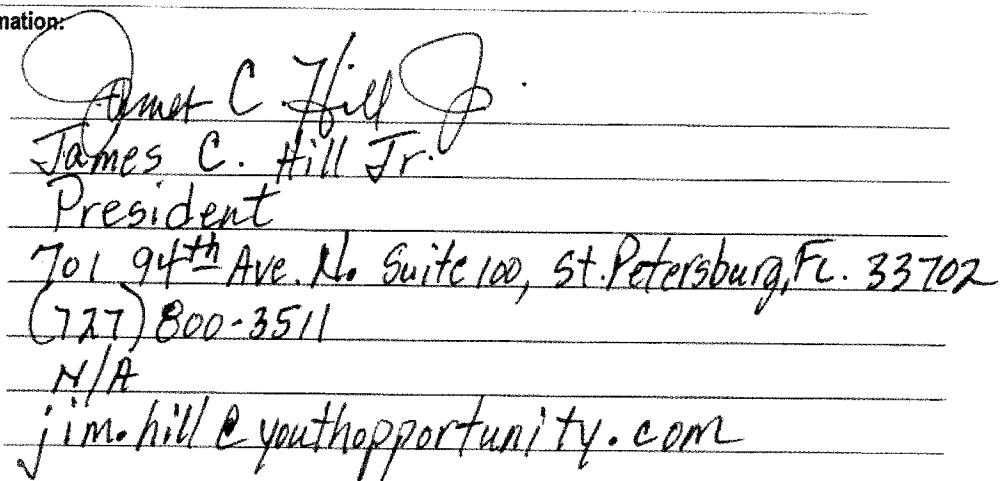 mation:
James C Hill Jr.
James C. Hill Jr.
President
701 94th Ave. N. Suite 100, St. Petersburg, FL. 33702
(727) 800-3511
N/A
jim.hill@youthopportunity.com